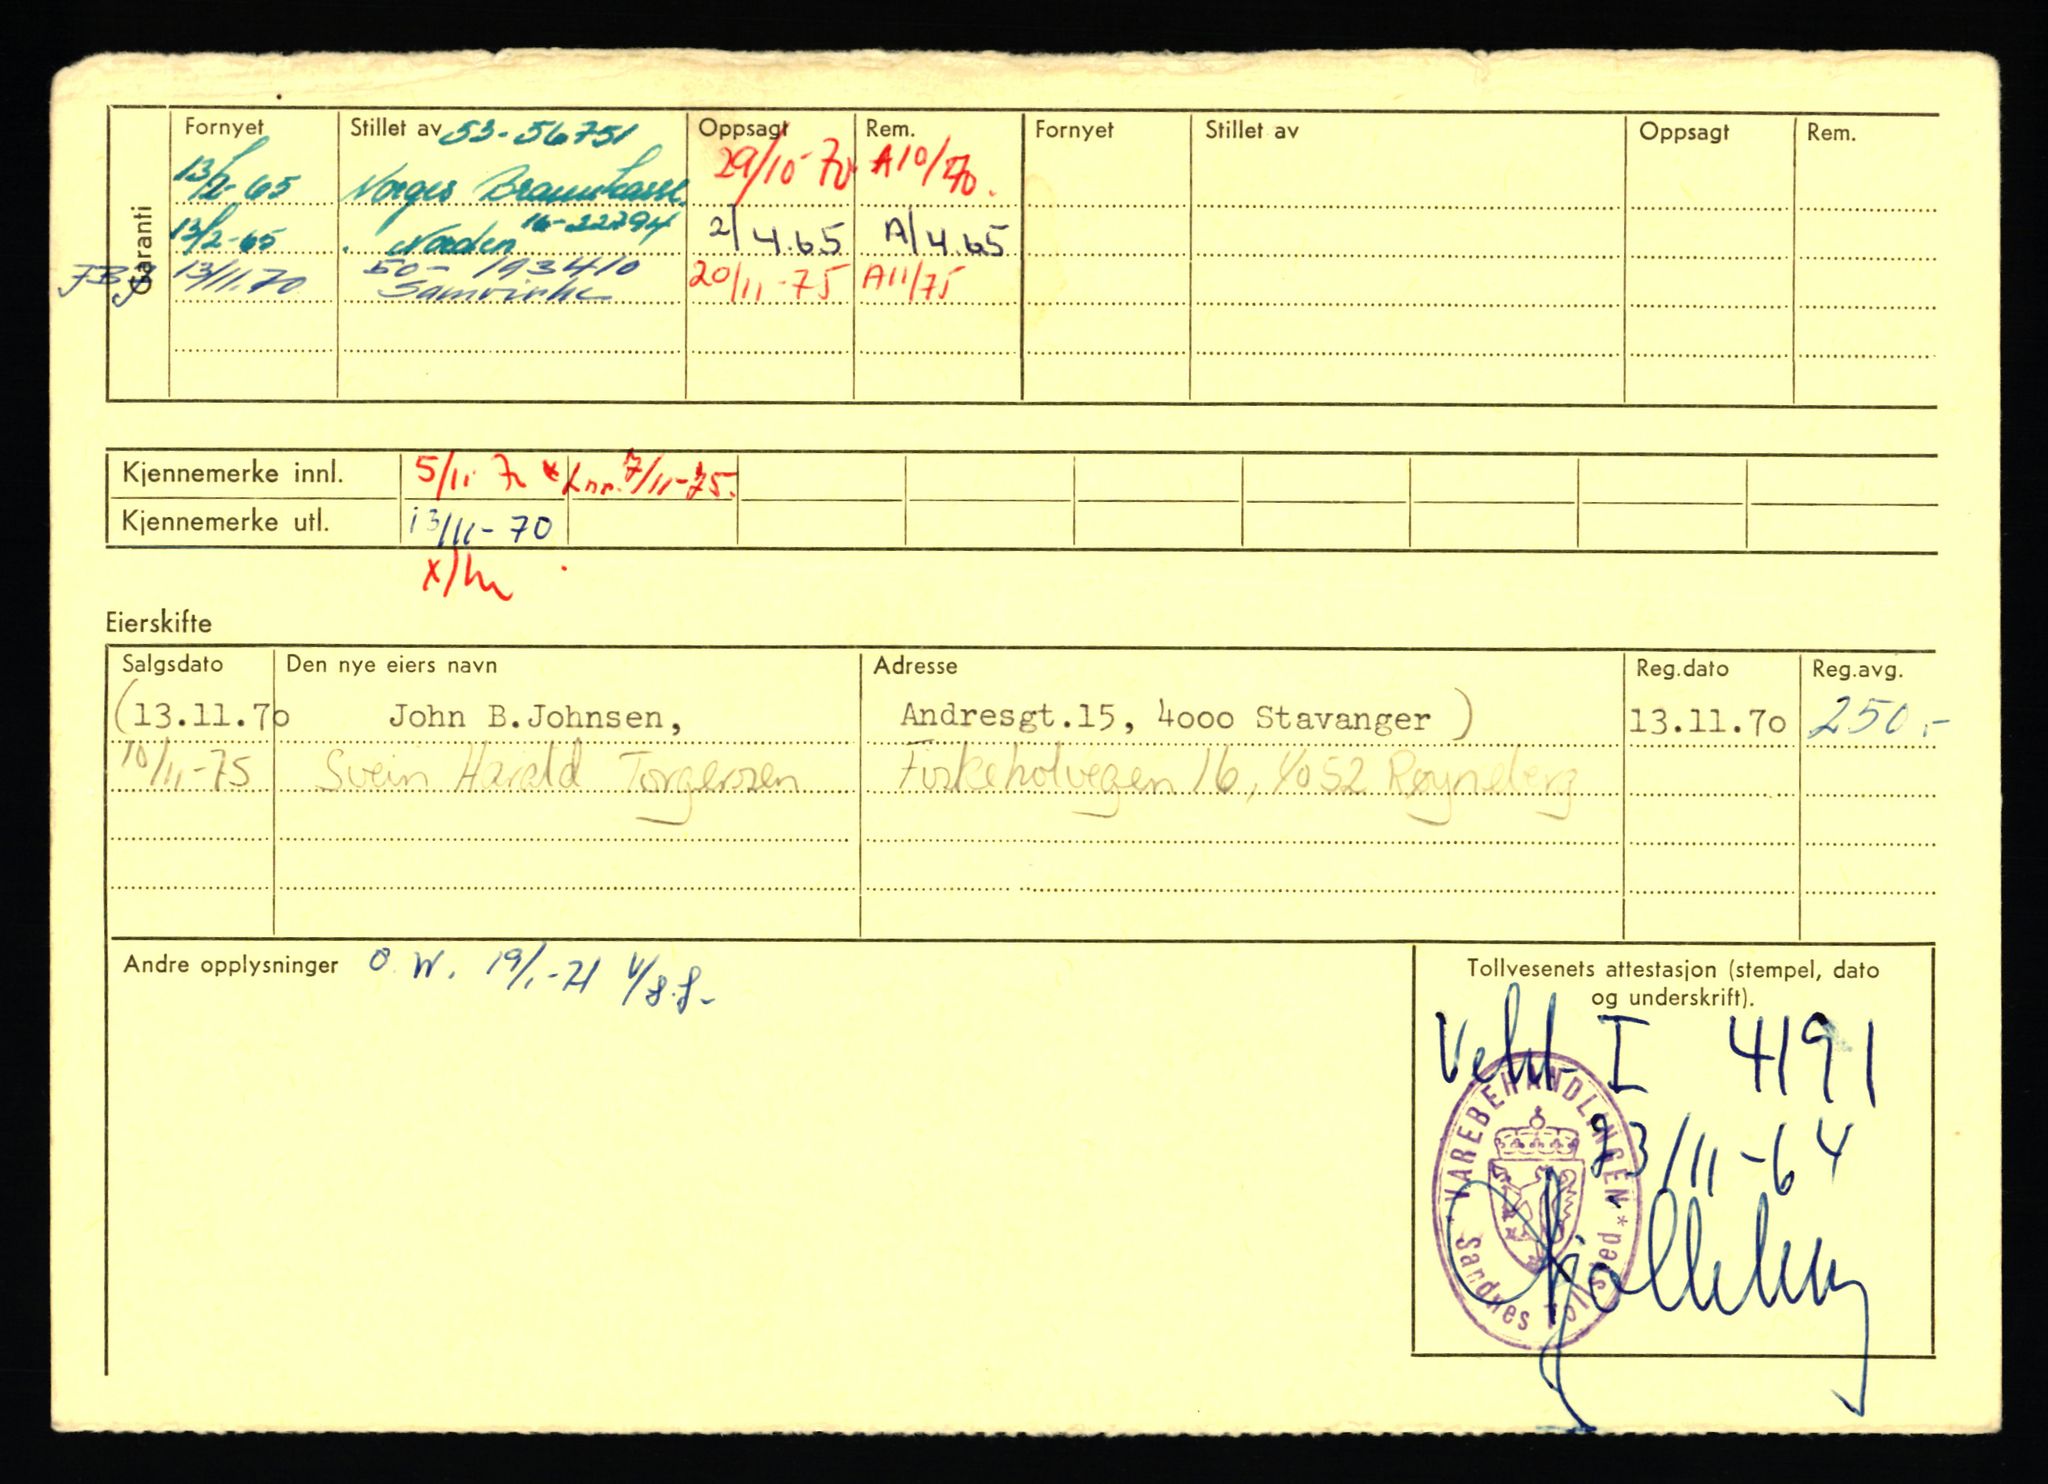 Garanti
Fornyet Stillet av 53-56751 Oppsagt Rem. Fornyet Stillet av Oppsagt Rem.
13/2-65 Norges Brannkasse. 29/10-70 A10/70.
13/2-65 Norden 16-22794 2/4.65 A/4.65
13/11.70 50-193410 Samvirke 20/11-75 A11/75
Kjennemerke innl. 5/11 70 x 7/11-75.
Kjennemerke utl. 13/11-70
Eierskifte
Salgsdato Den nye eiers navn Adresse Reg.dato Reg.avg.
(13.11.7o John B.Johnsen, Andresgt.15, 4ooo Stavanger ) 13.11.7o 250.-
10/11-75 Svein Harald Torgersen 16, 4052 Røyneberg
Andre opplysninger O.W. 19/1-71
Tollvesenets attestasjon (stempel, dato
og underskrift).
I 4191
23/11-64
VAREBEHANDLINGEN
Sandnes Tollsted